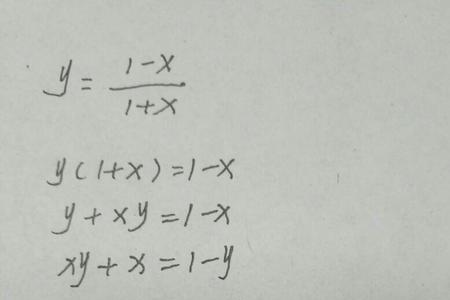 y = \frac{1-x}{1+x}
y(1+x)=1-x
y+xy=1-x
xy+x=1-y